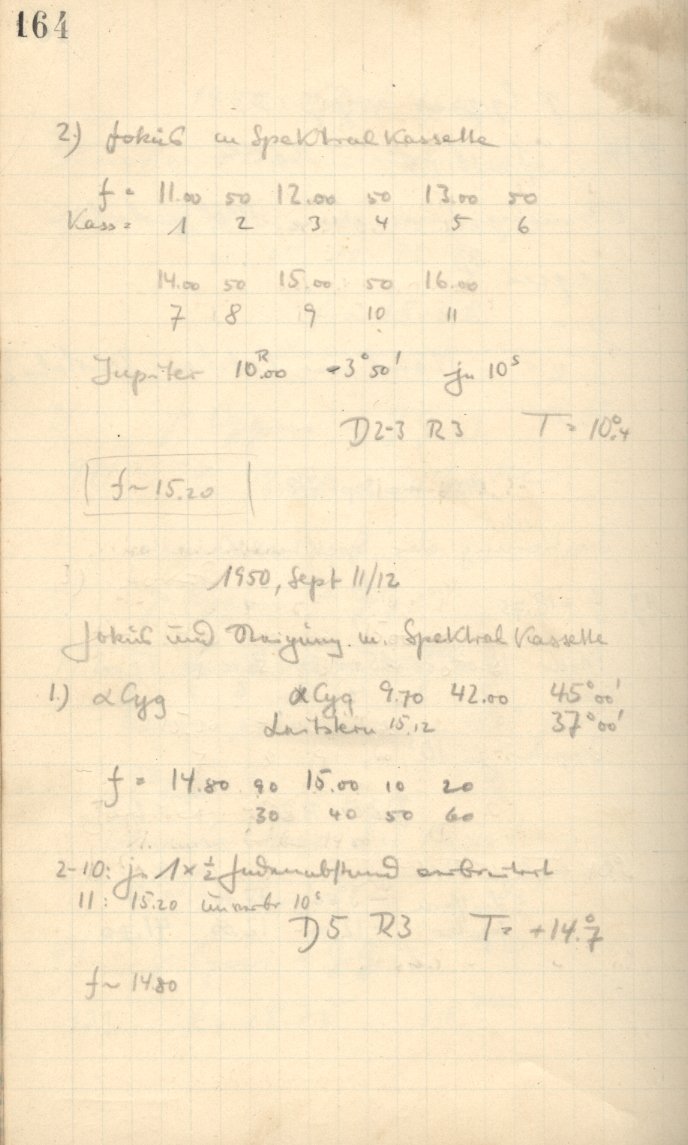 164
2.) Fokus m Spektralkassette
f = 11.00 50 12.00 50 13.00 50
Kass = 1 2 3 4 5 6
14.00 50 15.00 50 16.00
7 8 9 10 11
Jupiter 10ᴿ.00 -3°50' je 10ˢ
D2-3 R3 T = 10°.4
f ~ 15.20
3)
1950, Sept 11/12
Fokus und Neigung m. Spektralkassette
1.) α Cyg α Cyg 9.70 42.00 45°00'
Leitstern 15.12 37°00'
f = 14.80 90 15.00 10 20
30 40 50 60
2-10: je 1 × ½ Fadenabstand verbreitert
11: 15.20 unverbr 10ˢ
D5 R3 T = +14°.7
f ~ 14.80